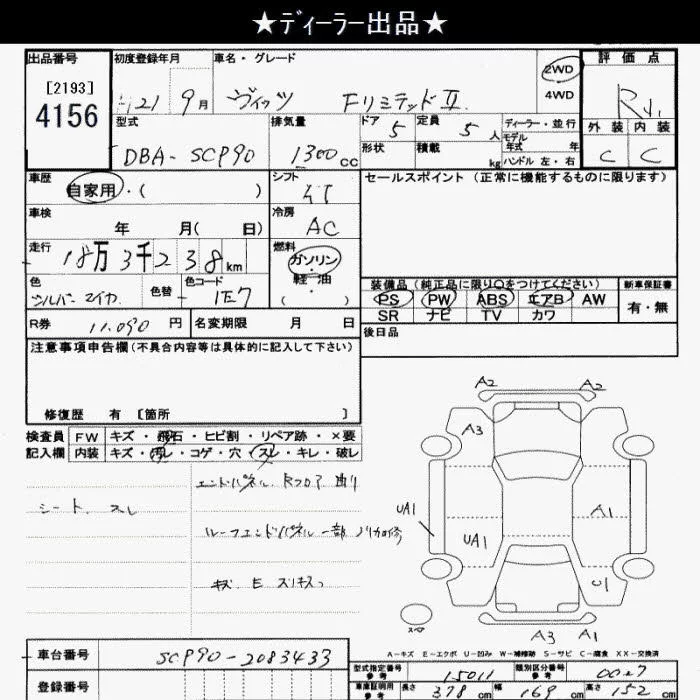 ★ディーラー出品★
出品番号 初度登録年月 車名・グレード 2WD 評価点
[2193] 4156 H21 9月 ヴィッツ Fリミテッド II 4WD R
型式 排気量 ドア 5 定員 5人 ディーラー・並行 外装 内装
DBA-SCP90 1300cc 形状 積載 kg モデル年式 年 C C
ハンドル 左・右
車歴 シフト セールスポイント(正常に機能するものに限ります)
自家用・( )
車検 冷房
年 月( 日) AC
走行 燃料
18万 3千 2 3 8 km ガソリン
色 色替 色コード 軽・油 装備品(純正品に限り○をつけてください) 新車保証書
シルバーマイカ 1E7 ( ) PS PW ABS エアB AW 有・無
SR ナビ TV カワ
R券 11,090 円 名変期限 月 日 後日品
注意事項申告欄(不具合内容等は具体的に記入して下さい)
修復歴 有 [箇所 ]
検査員 FW キズ・飛石・ヒビ割・リペア跡・×要
記入欄 内装 キズ・汚レ・コゲ・穴・スレ・キレ・破レ
エンドパネル Rフロア 曲り
シート スレ
ルーフエンドパネル一部
キズ E
A2 A2
A3
UA1 A1
UA1
U1
スペア
A3 A1
A-キズ E-エクボ U-凹み W-補修跡 S-サビ C-腐食 XX-交換済
車台番号 SCP90-2083433
型式指定番号 参考 15011 類別区分番号 参考 0027
登録番号 車庫証明用 参考 長さ 378 cm 幅 169 cm 高さ 152 cm